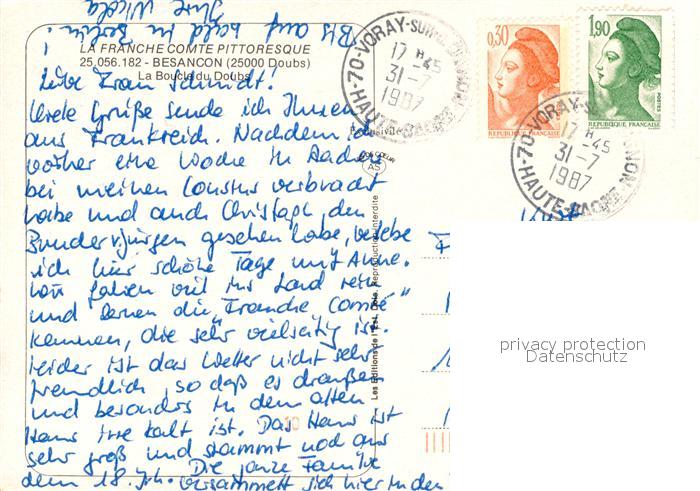 Bis auf bald in Berlin!
Ihre Nicola
LA FRANCHE COMTE PITTORESQUE
25.056.182 - BESANCON (25000 Doubs)
La Boucle du Doubs
Liebe Frau Schmidt!
Viele Grüße sende ich Ihnen
aus Frankreich. Nachdem ich
vorher eine Woche in Aachen
bei meinen Cousins verbracht
habe und auch Christoph, den
gesehen habe, verlebe
ich hier schöne Tage mit Anne.
Wir fahren viel ins Land rein
und lernen die "Franche Comté"
kennen, die sehr vielseitig ist.
Leider ist das Wetter nicht sehr
freundlich, so daß es draußen
und besonders in dem alten
Haus irre kalt ist. Das Haus ist
sehr groß und stammt noch aus
dem 18. Jh. Die ganze Familie
versammelt sich hier in den
Exclusivité
AS
Reproduction interdite
Les Editions de l'Est
70-VORAY-SUR-L'OGNON
17 H 45
31-7
1987
HAUTE-SAONE
0,30
REPUBLIQUE FRANCAISE
1,90
POSTES
REPUBLIQUE FRANCAISE
70-VORAY-SUR-L'OGNON
17 H -45
31-7
1987
HAUTE-SAONE
privacy protection
Datenschutz